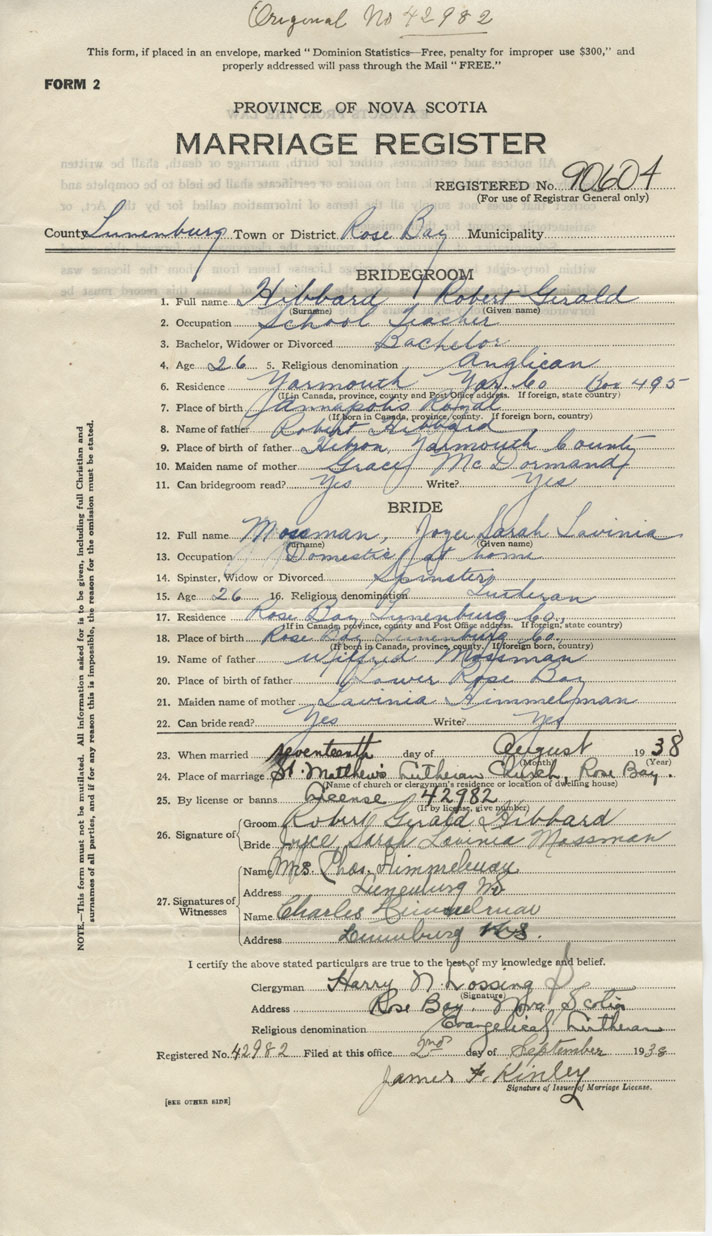 Original No 42982
This form, if placed in an envelope, marked "Dominion Statistics—Free, penalty for improper use $300," and
properly addressed will pass through the Mail "FREE."
FORM 2
PROVINCE OF NOVA SCOTIA
MARRIAGE REGISTER
REGISTERED No. 90604
(For use of Registrar General only)
County Lunenburg Town or District Rose Bay Municipality
BRIDEGROOM
1. Full name Hibbard Robert Gerald
(Surname) (Given name)
2. Occupation School Teacher
3. Bachelor, Widower or Divorced Bachelor
4. Age 26 5. Religious denomination Anglican
6. Residence Yarmouth Yar. Co Box 495
(If in Canada, province, county and Post Office address. If foreign, state country)
7. Place of birth Annapolis Royal
(If born in Canada, province, county. If foreign born, country)
8. Name of father Robert Hibbard
9. Place of birth of father Hebron, Yarmouth County
10. Maiden name of mother Grace McDormand
11. Can bridegroom read? Yes Write? Yes
BRIDE
12. Full name Mossman, Joyce Sarah Lavinia
(Surname) (Given name)
13. Occupation Domestic at home
14. Spinster, Widow or Divorced Spinster
15. Age 26 16. Religious denomination Lutheran
17. Residence Rose Bay Lunenburg Co.,
(If in Canada, province, county and Post Office address. If foreign, state country)
18. Place of birth Rose Bay Lunenburg Co.
(If born in Canada, province, county. If foreign born, country)
19. Name of father Wilfred Mossman
20. Place of birth of father Lower Rose Bay
21. Maiden name of mother Lavinia Himmelman
22. Can bride read? Yes Write? Yes
23. When married seventeenth day of August 1938
(Month) (Year)
24. Place of marriage St. Matthew's Lutheran Church, Rose Bay.
(Name of church or clergyman's residence or location of dwelling house)
25. By license or banns License 42982
(If by license, give number)
26. Signature of Groom Robert Gerald Hibbard
Bride Joyce Sarah Lavinia Mossman
27. Signatures of Witnesses Name Mrs. Chas. Himmelman
Address Lunenburg NS
Name Charles Himmelman
Address Lunenburg N.S.
I certify the above stated particulars are true to the best of my knowledge and belief.
Clergyman Harry N. Lossing
(Signature)
Address Rose Bay, Nova Scotia
Religious denomination Evangelical Lutheran
Registered No. 42982 Filed at this office 2nd day of September 1938
James F. Kinley
Signature of Issuer of Marriage License.
[SEE OTHER SIDE]
NOTE.—This form must not be mutilated. All information asked for is to be given, including full Christian and
surnames of all parties, and if for any reason this is impossible, the reason for the omission must be stated.